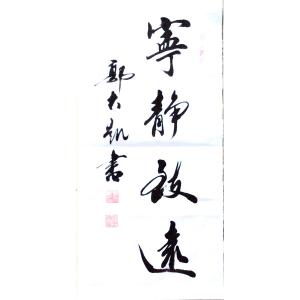 寧靜致遠
郭大凱書